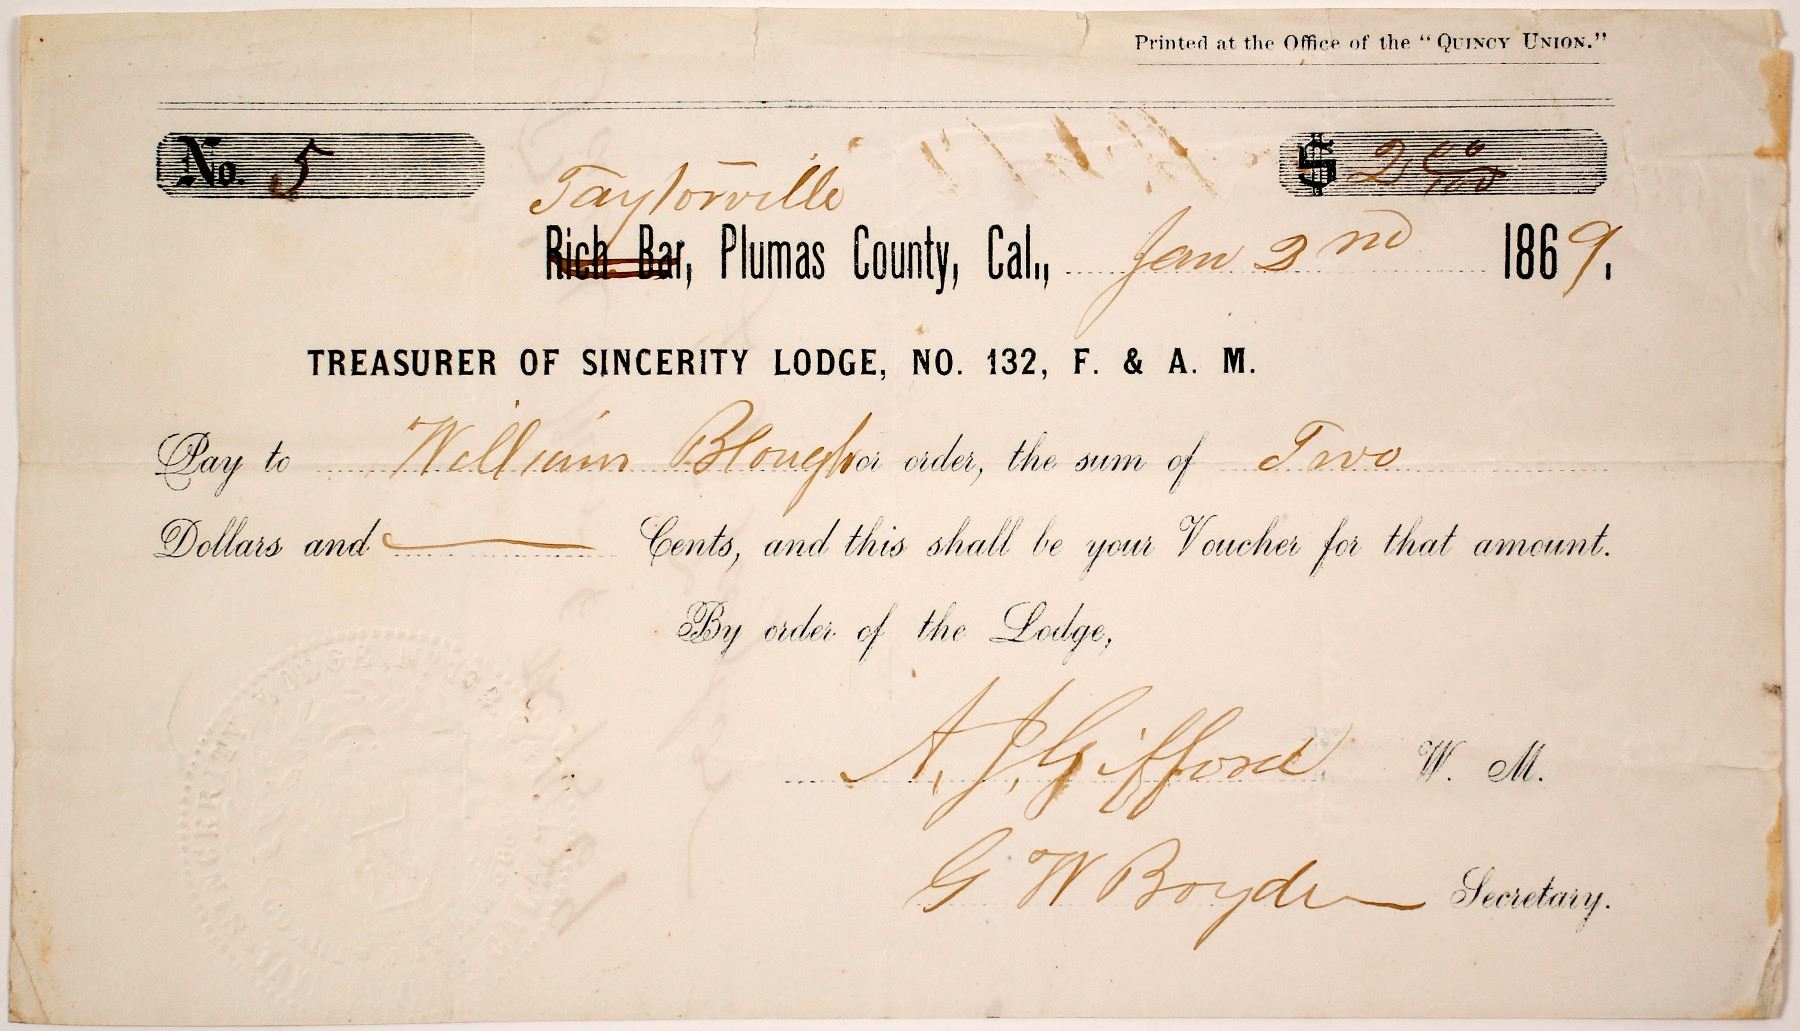 Printed at the Office of the "QUINCY UNION."
No. 5
$ 2 00/100
Taylorville
Rich Bar, Plumas County, Cal., Jan 2nd 1869.
TREASURER OF SINCERITY LODGE, NO. 132, F. & A. M.
Pay to William Blough or order, the sum of Two
Dollars and — Cents, and this shall be your Voucher for that amount.
By order of the Lodge,
A. J. Gifford W. M.
G W Boyden Secretary.
SINCERITY LODGE, No 132